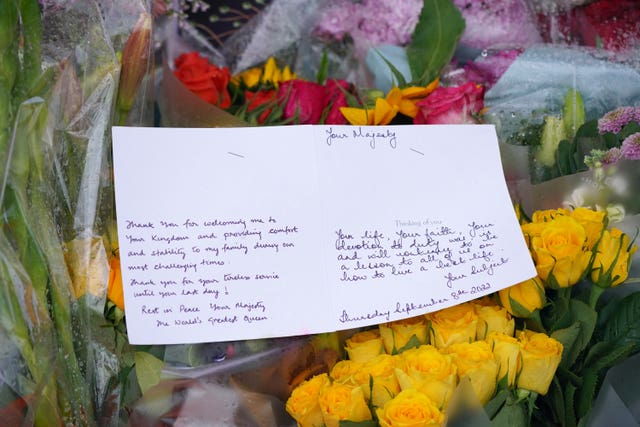 Thank you for welcoming me to
Your Kingdom and providing comfort
and stability to my family during our
most challenging times.
Thank you for your tireless service
until your last day!
Rest in Peace Your Majesty
The World's Greatest Queen
Your Majesty
Thinking of you
Your life, Your faith, Your
devotion to duty was
and will continue to be
a lesson to all of us on
how to live a life.
Your Subject
Thursday September 8th 2022